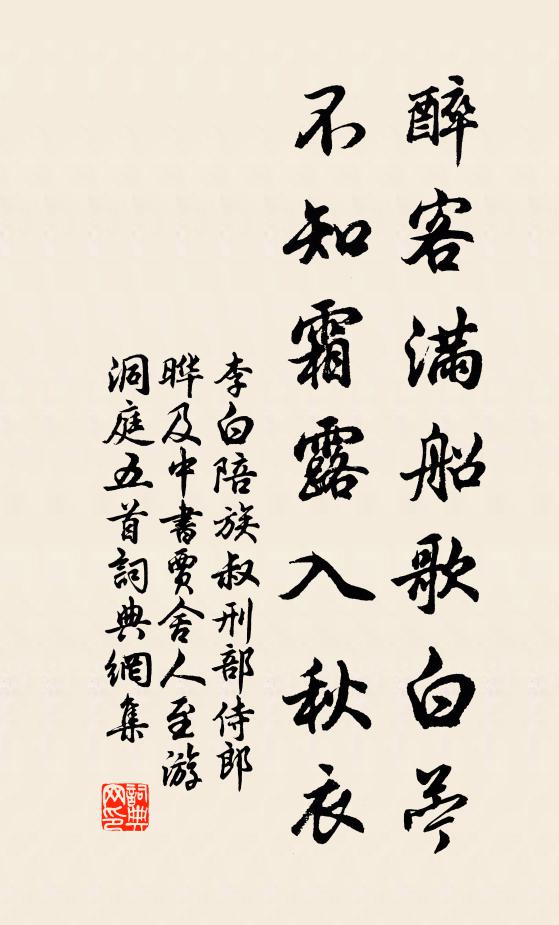 醉客满船歌白苎
不知霜露入秋衣
李白陪族叔刑部侍郎
晔及中書賈舍人至游
洞庭五首詞典網集
詞典网印